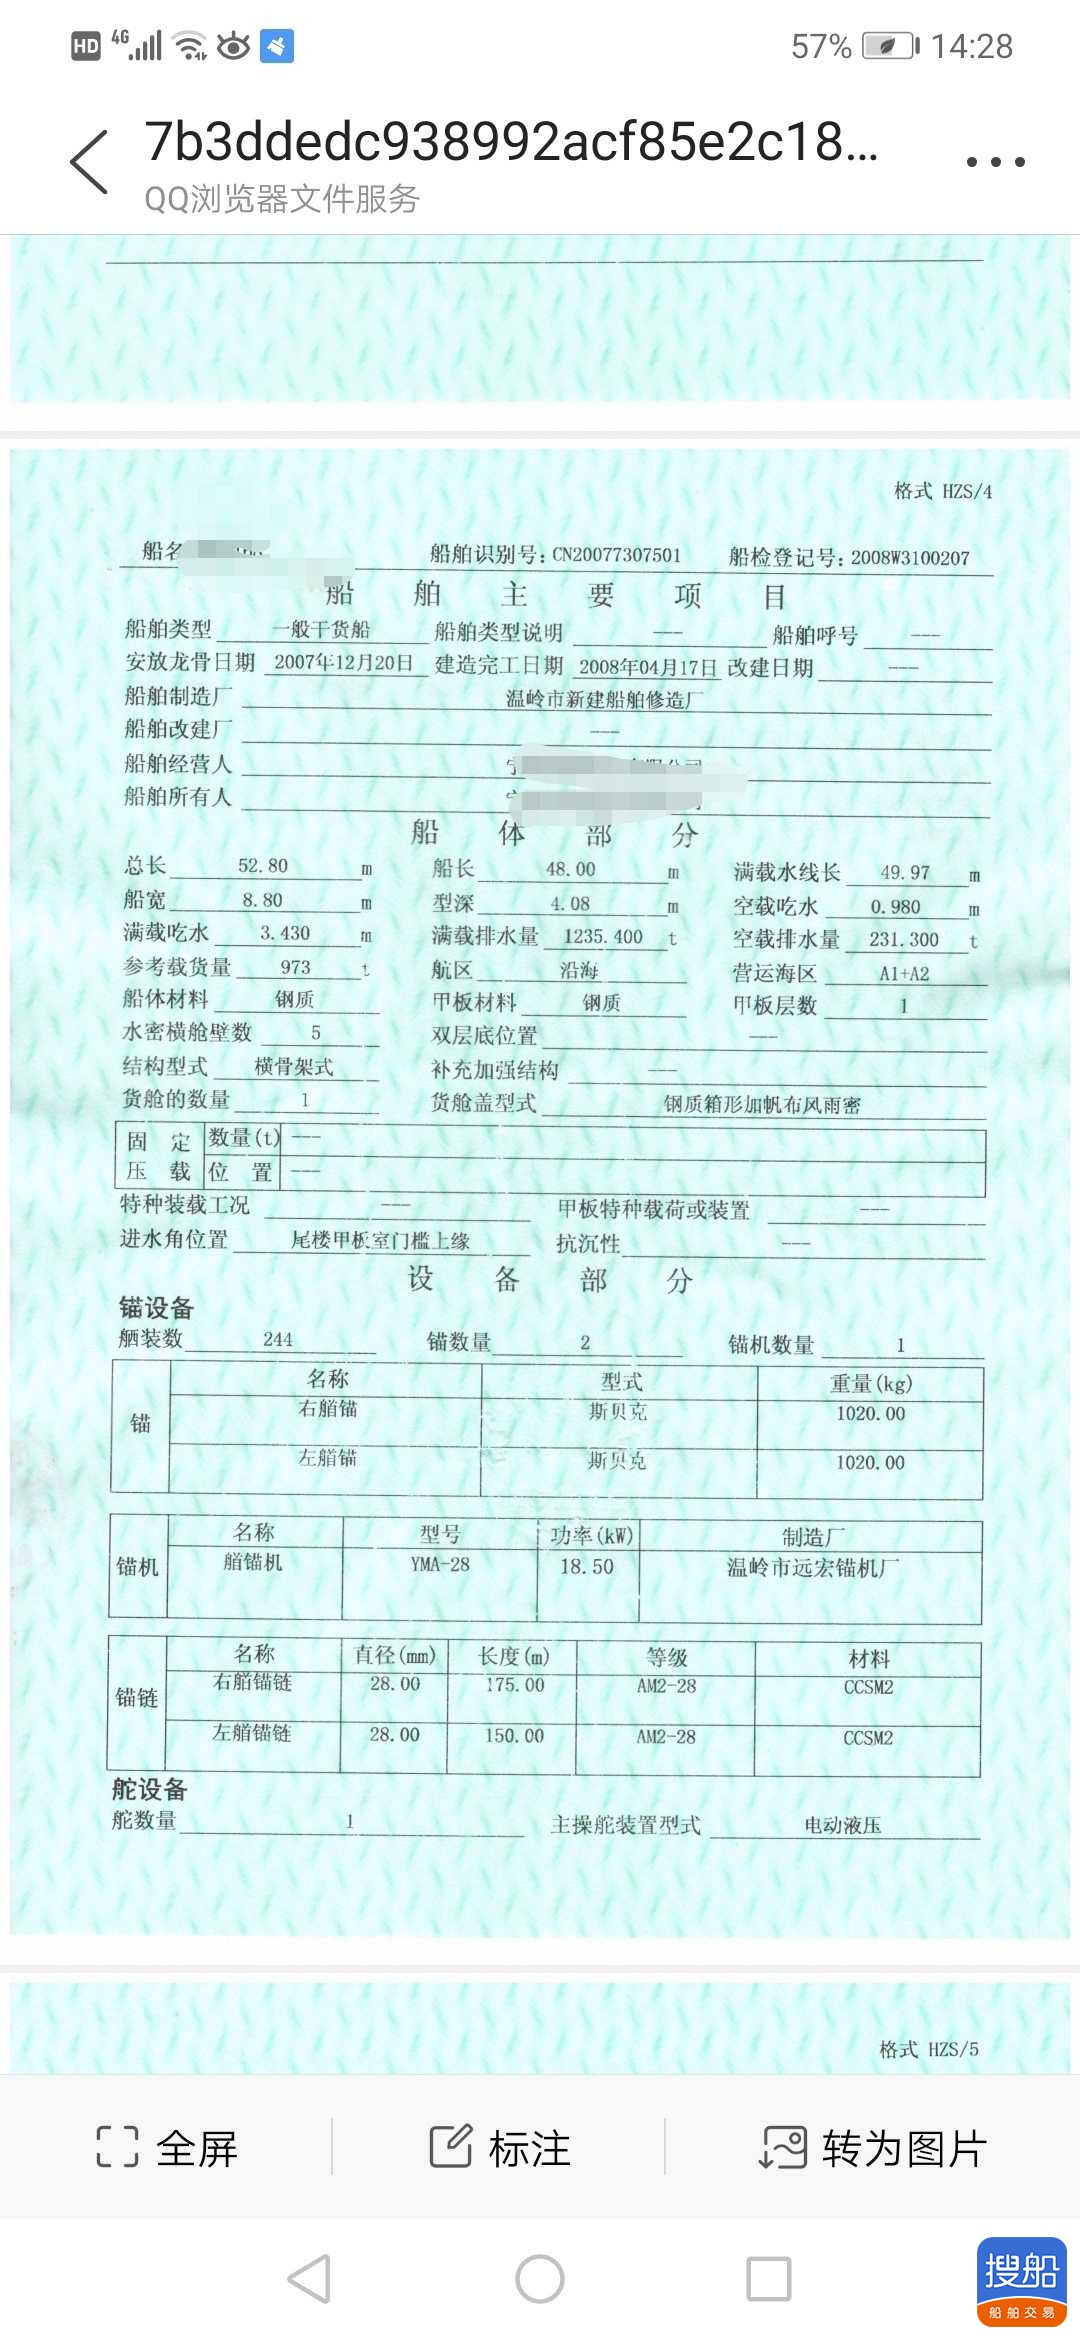 HD 4G 57% 14:28
7b3ddedc938992acf85e2c18...
QQ浏览器文件服务
格式 HZS/4
船名 船舶识别号:CN20077307501 船检登记号:2008W3100207
船舶主要项目
船舶类型 一般干货船 船舶类型说明 --- 船舶呼号 ---
安放龙骨日期 2007年12月20日 建造完工日期 2008年04月17日 改建日期 ---
船舶制造厂 温岭市新建船舶修造厂
船舶改建厂 ---
船舶经营人
船舶所有人
船体部分
总长 52.80 m 船长 48.00 m 满载水线长 49.97 m
船宽 8.80 m 型深 4.08 m 空载吃水 0.980 m
满载吃水 3.430 m 满载排水量 1235.400 t 空载排水量 231.300 t
参考载货量 973 t 航区 沿海 营运海区 A1+A2
船体材料 钢质 甲板材料 钢质 甲板层数 1
水密横舱壁数 5 双层底位置 ---
结构型式 横骨架式 补充加强结构 ---
货舱的数量 1 货舱盖型式 钢质箱形加帆布风雨密
固定 数量(t) ---
压载 位置 ---
特种装载工况 --- 甲板特种载荷或装置 ---
进水角位置 尾楼甲板室门槛上缘 抗沉性 ---
设备部分
锚设备
舾装数 244 锚数量 2 锚机数量 1
名称 型式 重量(kg)
锚
右艏锚 斯贝克 1020.00
左艏锚 斯贝克 1020.00
名称 型号 功率(kW) 制造厂
锚机 艏锚机 YMA-28 18.50 温岭市远宏锚机厂
名称 直径(mm) 长度(m) 等级 材料
锚链
右艏锚链 28.00 175.00 AM2-28 CCSM2
左艏锚链 28.00 150.00 AM2-28 CCSM2
舵设备
舵数量 1 主操舵装置型式 电动液压
格式 HZS/5
全屏 标注 转为图片
搜船
船舶交易